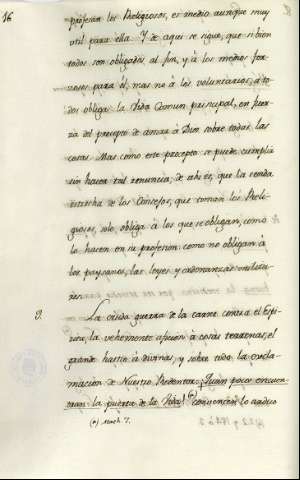 16
profesión los Religiosos, es medio aunque muy
util para ella. Y de aqui se sigue, que si bien
todos son obligados al fin, y à los medios for-
zosos para él, mas no à los voluntarios, à to-
dos obliga la Vida Comun principal, en fuer-
za del precepto de amar à Dios sobre todas las
cosas. Mas como este precepto se puede cumplir
sin hacer tal renuncia; de ahi es, que la senda
estrecha de los Consejos, que toman los Reli-
giosos, solo obliga à los que se obligan, como
lo hacen en su profesion: como no obligan à
los paysanos, las leyes y ordenanzas milita-
res.
9. La cruda guerra de la carne contra el Espi-
ritu, la vehemente aficion à cosas terrenas, el
grande hastío à divinas, y sobre todo la excla-
macion de Nuestro Redentor: ¡Quán pocos encuen-
tran la puerta de la Vida! (*) convencen lo arduo
(*) Math. 7.